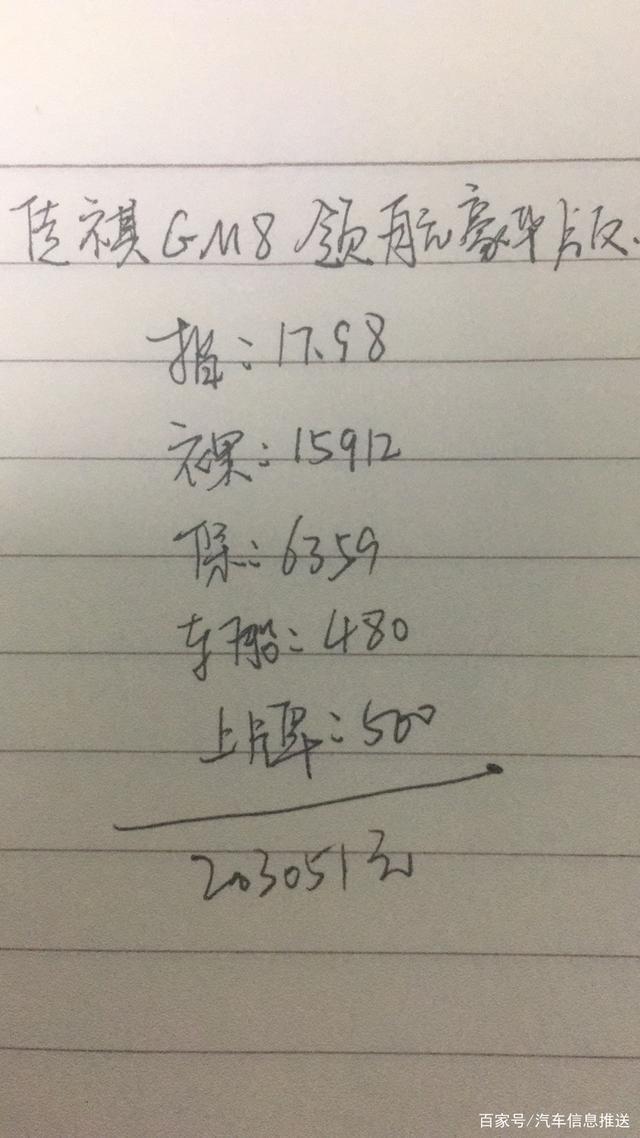 传祺GM8领航豪华版.
指:17.98
裸:15912
保:6359
车船:480
上牌:500
203051元
百家号/汽车信息推送